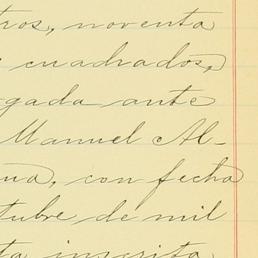 tros, noventa
cuadrados,
gada ante
Manuel Al-
na, con fecha
tubre de mil
ta inscrita